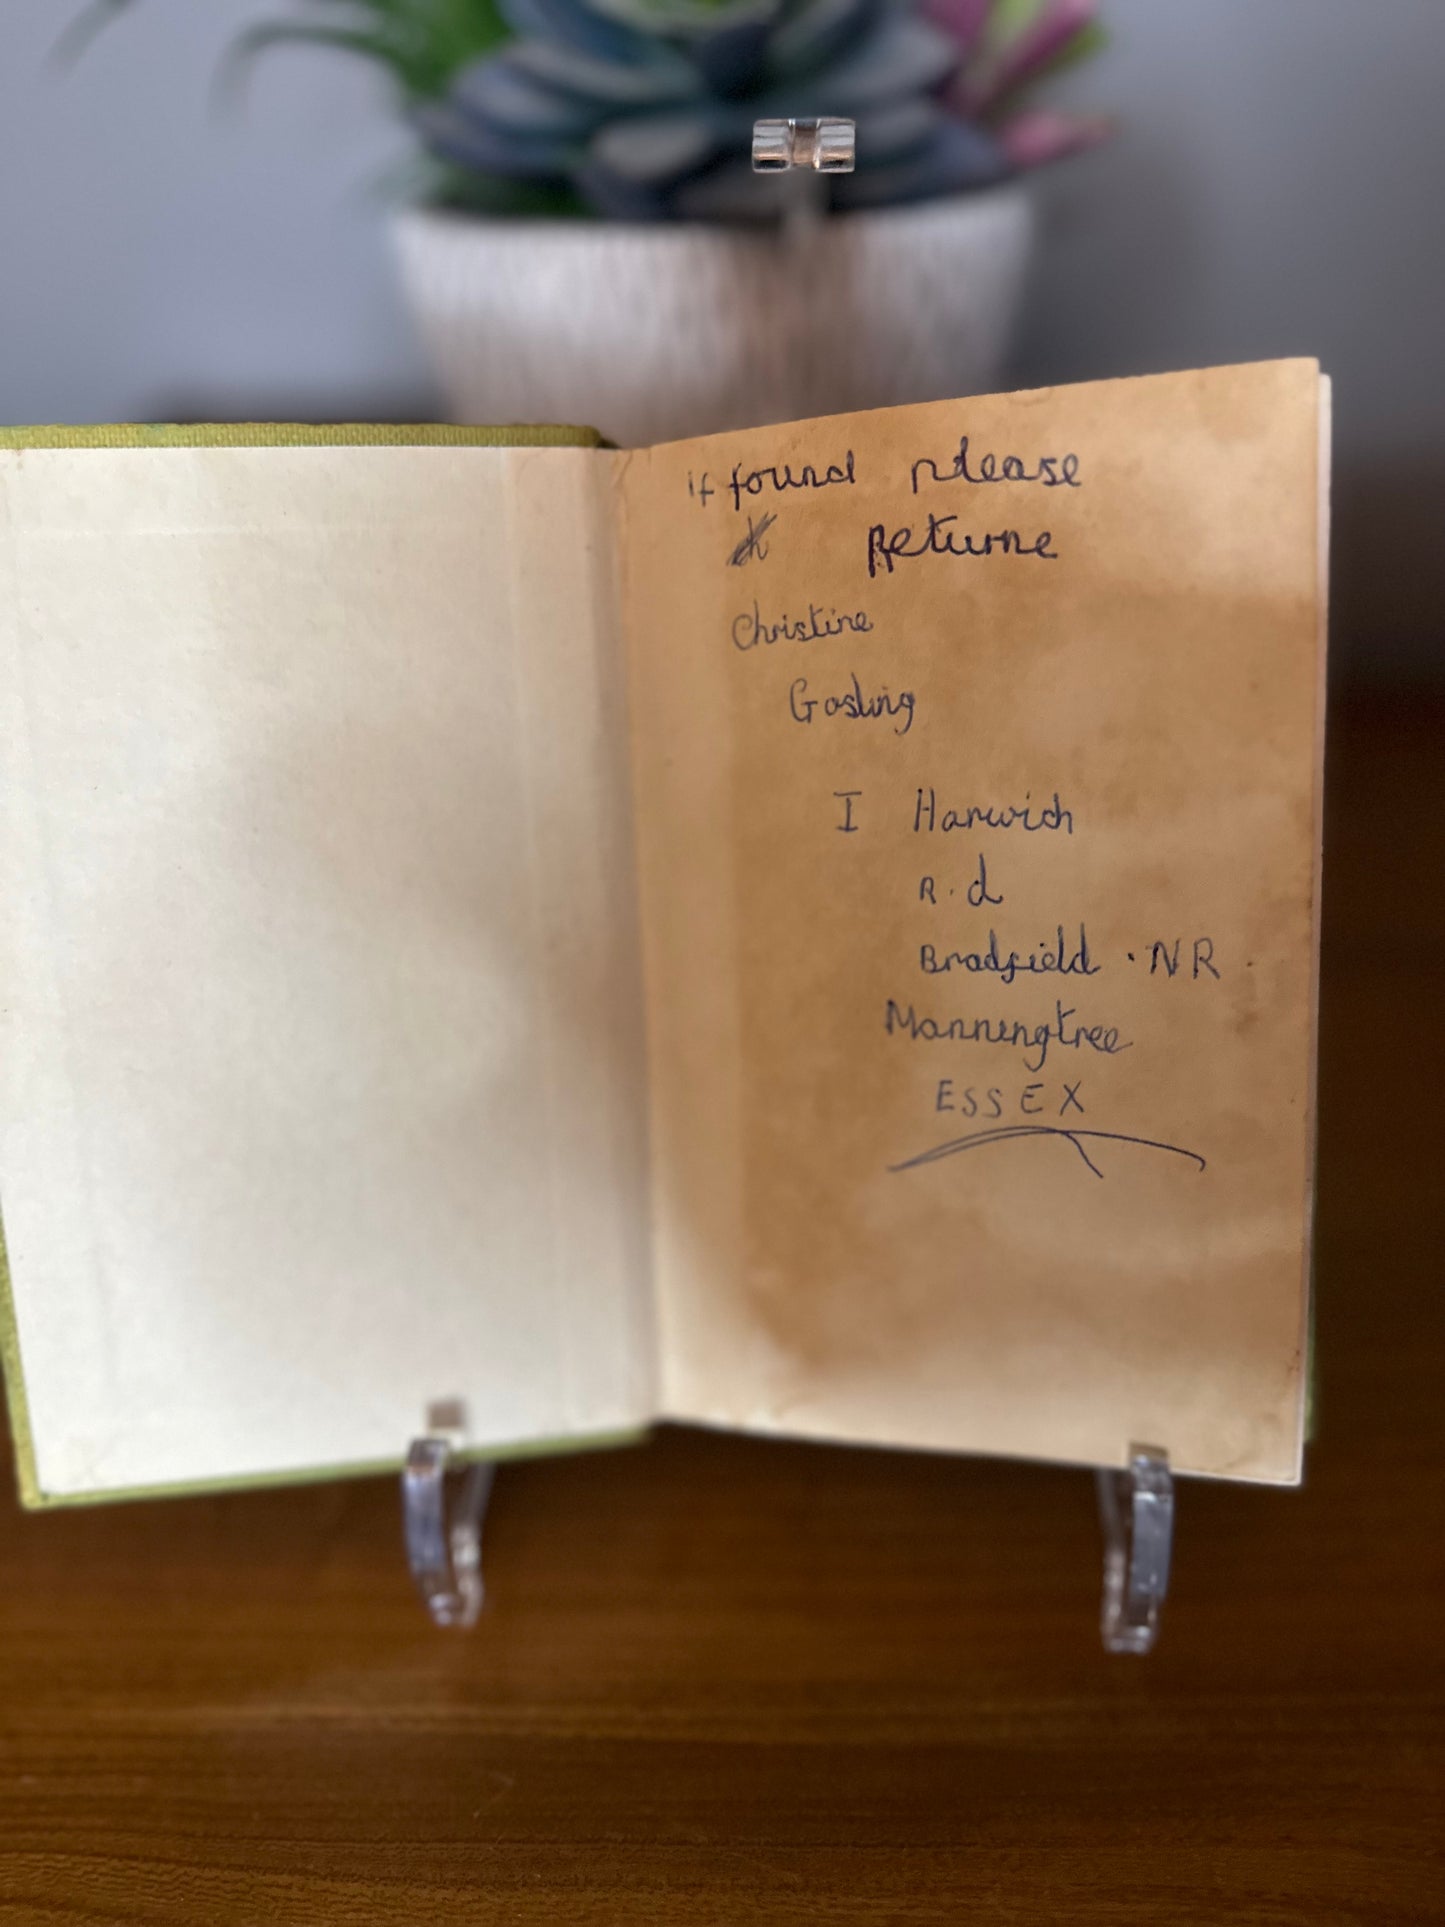 if found please
Returne
Christine
Gosling
I Harwich
R.d
Bradfield . NR .
Manningtree
ESSEX